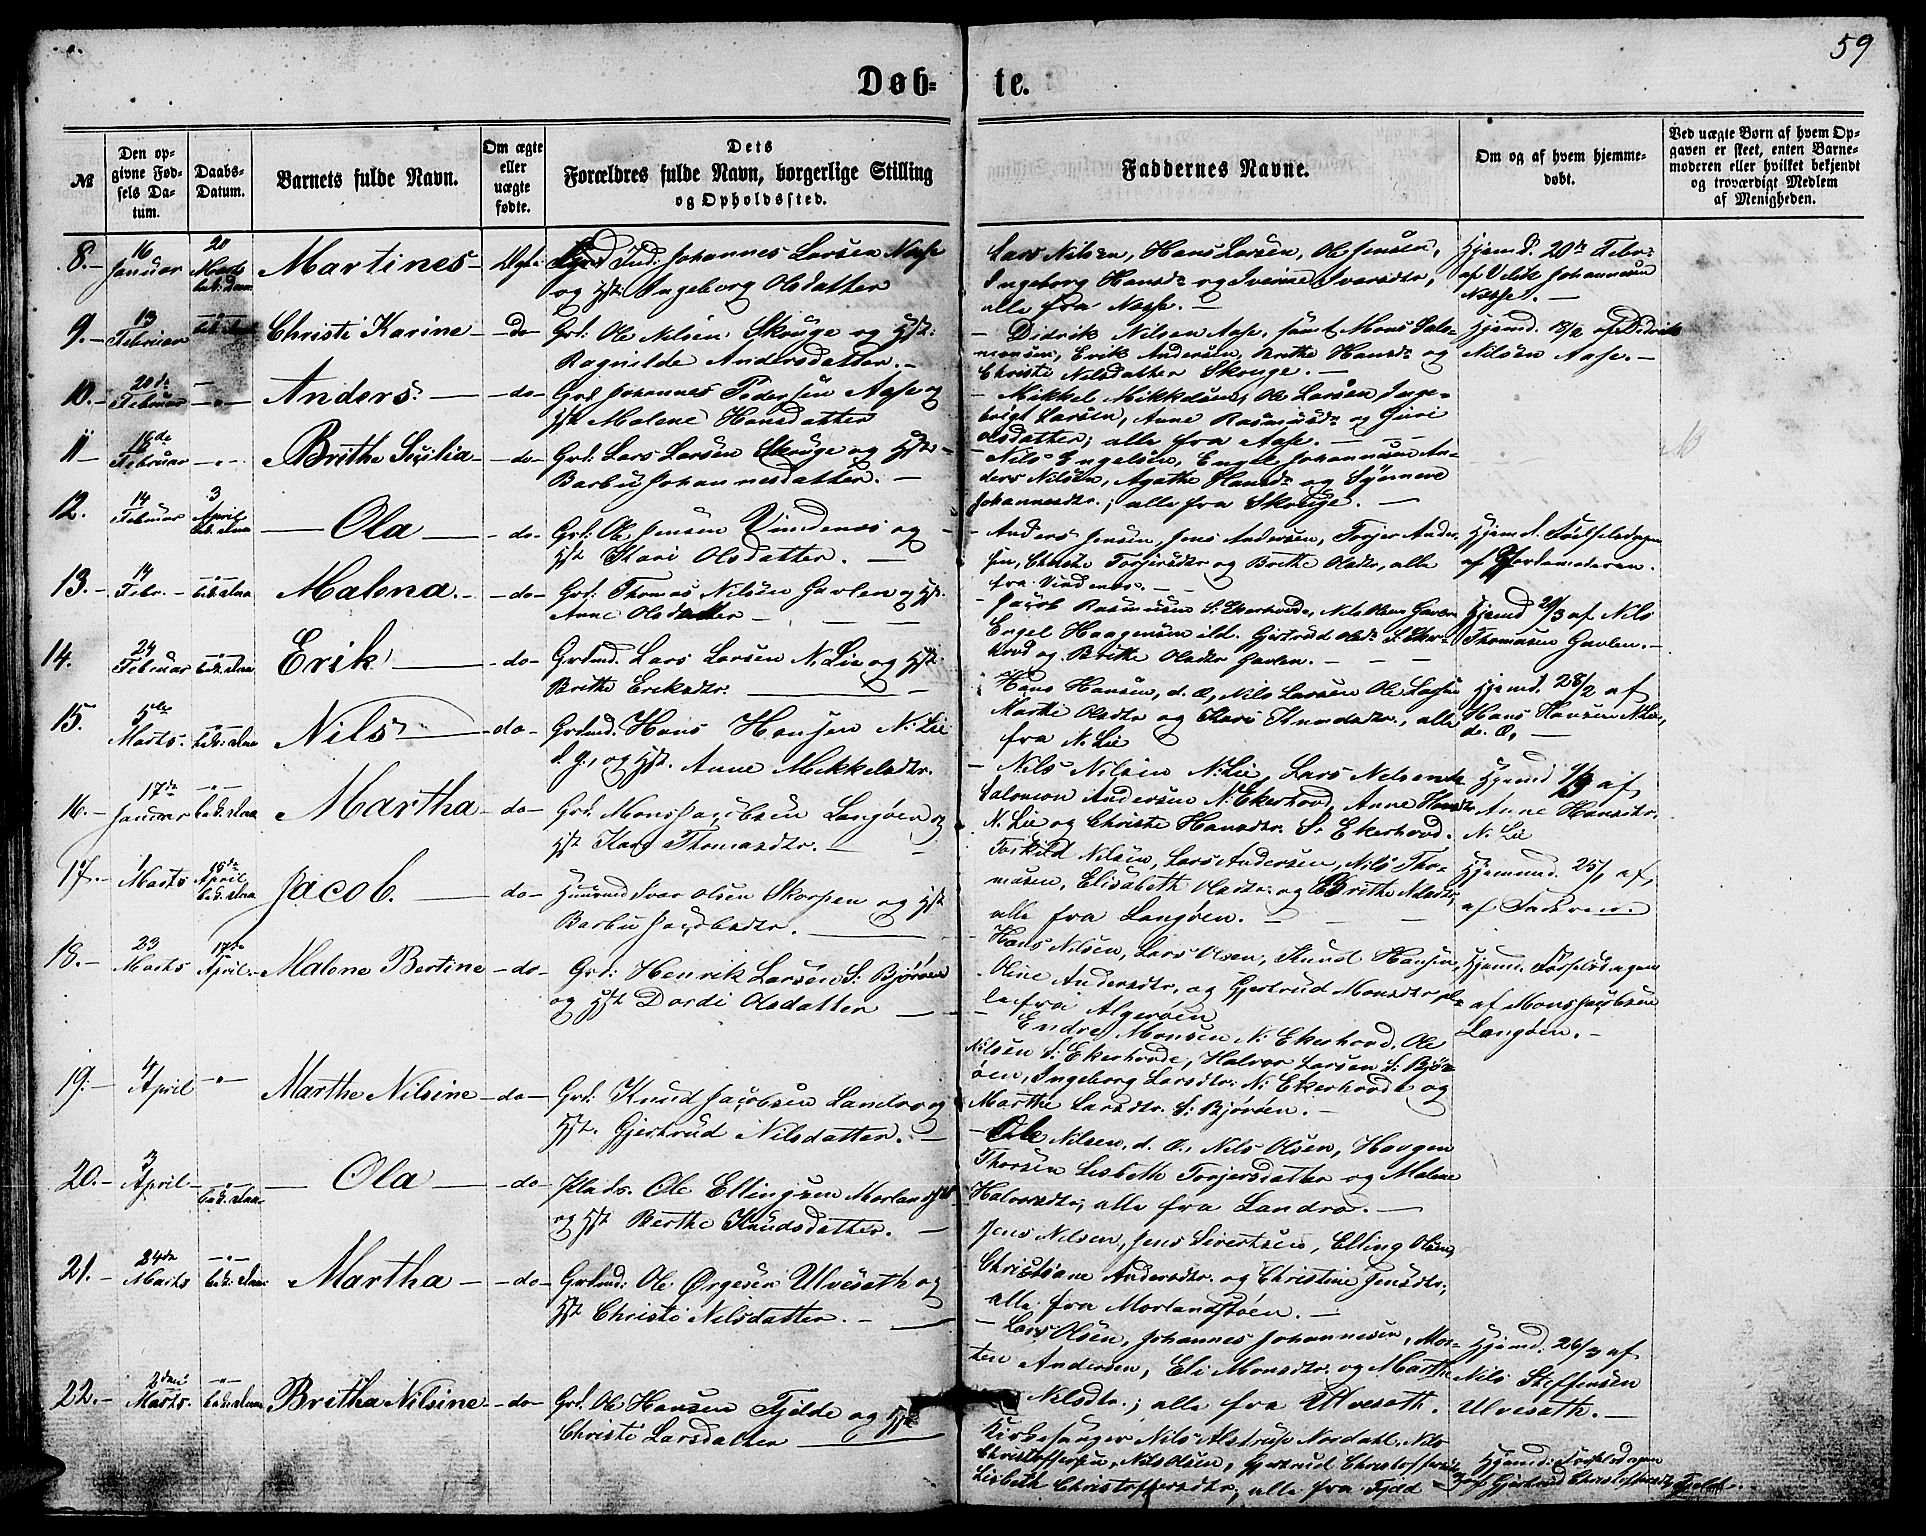 59
Døb-te.
№
Den op-
givne Fød-
sels Da-
tum.
Daabs-
Datum.
Barnets fulde Navn.
Om ægte
eller
uægte
fødte.
Dets
Forældres fulde Navn, borgerlige Stilling
og Opholdssted.
Faddernes Navne.
Om og af hvem hjemme-
døbt.
Ved uægte Børn af hvem Op-
gaven er skeet, enten Barne-
moderen eller hvilket bekjendt
og troværdigt Medlem
af Menigheden.
8.- 16 Januar 20 Marts Martines Johannes Larsen
og Hst. Ingeborg Olsdatter
Lars Nilsen, Hans Larsen, Ole Jensen,
Ingeborg Hansd. og Iverine Iversdtr,
alle fra
Hjemd. 20de Febr.
Johannesen
9.- 13 Februar Christi Karine - do - Grd. Ole Nilsen Skouge og Hst.
Ragnilde Andersdatter. -
Didrik Nilsen Aase, samt Mons Salo-
monsen, Erik Andersen, Brithe Hansdr og
Christi Nilsdatter Skouge. -
Hjemd. 13/2 af Didrik
Nilsen Aase. -
10.- 20de Februar - " - Anders. - do - Grd. Johannes Pedersen Aase og
Hst. Malene Hansdatter
Mikkel Mikkelsen, Ole Larsen, Inge-
brigt Larsen, Anne Rasmusd. og Guri
Olsdatter, alle fra Aase. -
11 - Februar - " - Brithe Sicilia - do - Grd. Lars Larsen Skouge og Hst.
Barbu Johannesdatter. -
Nils Engelsen, Engel Johannesen, An-
ders Nilsen, Agathe Hansd. og Synneve
Johannesdtr.; alle fra Skouge. -
12. 14 Februar 3 April Ola - do - Grd. Ole Jensen Vindenes og
Hst. Kari Olsdatter. -
Anders Jensen, Jens Andersen, Torjer Ander-
sen, Christi Torjersdtr og Brithe Olsdtr, alle
fra Vindenes. -
Hjemd. Fødselsdagen
af Jordemoderen.
13. - 14 Febr. - Malena. - do - Grd. Thomas Nilsen Gavlen og Hst.
Anne Olsdatter
Jacob Rasmusen S. Ekerhovde, Nils Olsen Gavlen
Engel Haagensen ibd. Gjertrud Olsd. S. Eker-
hovd og Brithe Olsdtr Gavlen. -
Hjemd 20/3 af Nils
Thomasen Gavlen. -
14. 24 Februar Erik - do - Grdmd. Lars Larsen N. Lie og Hst.
Brithe Eriksdtr.
Hans Hansen, d. æ, Nils Larsen Ole Larsen
Marthe Olsdtr og Kari Knudsdtr., alle
fra N. Lie
Hjemd. 28/2 af
Hans Hansen N. Lie,
de. æ, -
15. 5te Marts. Nils - do - Grdmd. Hans Hansen N. Lie
d. y., og Hst. Anne Mikkelsdtr.
Nils Nilsen N. Lie, Lars Nilsen
Salomon Andersen N. Ekerhovd, Anne Hansdtr
N. Lie og Christi Hansdtr. S. Ekerhovd.
Hjemd af
Anne Hansdtr.
N. Lie
16. - 17de Januar Martha - do - Grd. Mons Jacobsen Langøen og
Hst. Kari Thomasdtr. -
Torkild Nilsen, Lars Andersen, Nils Tho-
masen, Elisabeth Olsdtr. og Brithe Nilsdtr,
alle fra Langøen. -
Hjemmd. 25/1 af,
af
17. - 1 Marts 15de April Jacob. do - Huusmd Ivar Olsen Skorpen og Hst
Barbu Jacobsdtr.
Hans Nilsen, Lars Olsen, Knud Hansen,
Oline Andersdtr, og Gjertrud Monsdtr, al-
le fra Algerøen
Hjemm. Fødselsdagen
af Mons Jacobsen
Langøen. -
18. - 23 Marts 17de April. - Malene Bertine - do - Grd. Henrik Larsen S. Bjørøen
og Hst. Dordi Olsdatter
Endre Monsen N. Ekerhovd, Ole
Nilsen S. Ekerhovde, Halvor Larsen S. Bjør-
øen, Ingeborg Larsdtr. N. Ekerhovde og
Marthe Larsdtr. S. Bjørøen. -
19. - 4 April - " - Marthe Nilsine - do - Grd. Knud Jacobsen Landro og
Hst. Gjertrud Nilsdatter. -
Ole Nilsen, d. æ., Nils Olsen, Haagen
Thorsen Lisbeth Torjersdatter og Malene
Halvorsdtr, alle fra Landro. -
20. - 3 April - Ola - do - Plads. Ole Ellingsen Morlandstø
og Hst Berthe Knudsdatter. -
Jens Nilsen, Jens Sivertsen, Elling Olsen,
Christiane Andersdtr. og Christine Jensdtr,
alle fra Morlandstøen. -
21. - 24de Marts Martha - do - Grdmd. Ole Ørgesen Ulvesæth og
Hst Christi Nilsdatter. -
Lars Olsen, Johannes Johannesen, Mor-
ten Andersen, Eli Monsdtr. og Marthe
Nilsdtr.; alle fra Ulvesæth.
Hjemd. 26/3 af
Nils Steffensen
Ulvesæth. -
22. - 2den Marts. Britha Nilsine - do - Grd. Ole Hansen Fjelde og Hst.
Christi Larsdatter
Kirkesanger Nils Alstrup Nordahl, Nils
Christoffersen, Nils Olsen, Gjertrud Christoffersd.
Lisbeth Christoffersdtr, alle fra Fjeld
Hjemd. Fødselsdagen
af Gjertrud Christoffersdtr Fjelde. -